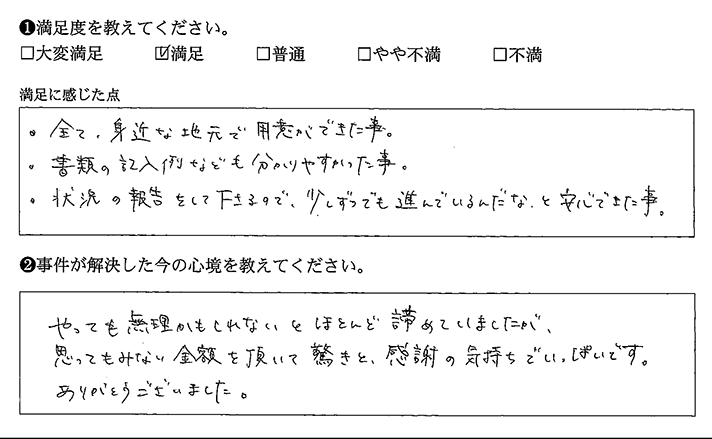 ❶満足度を教えてください。
□大変満足 ☑満足 □普通 □やや不満 □不満
満足に感じた点
・全て、身近な地元で用意ができた事。
・書類の記入例なども分かりやすかった事。
・状況の報告をして下さるので、少しずつでも進んでいるんだな、と安心できた事。
❷事件が解決した今の心境を教えてください。
やっても無理かもしれないとほとんど諦めていましたが、
思ってもみない金額を頂いて驚きと、感謝の気持ちでいっぱいです。
ありがとうございました。